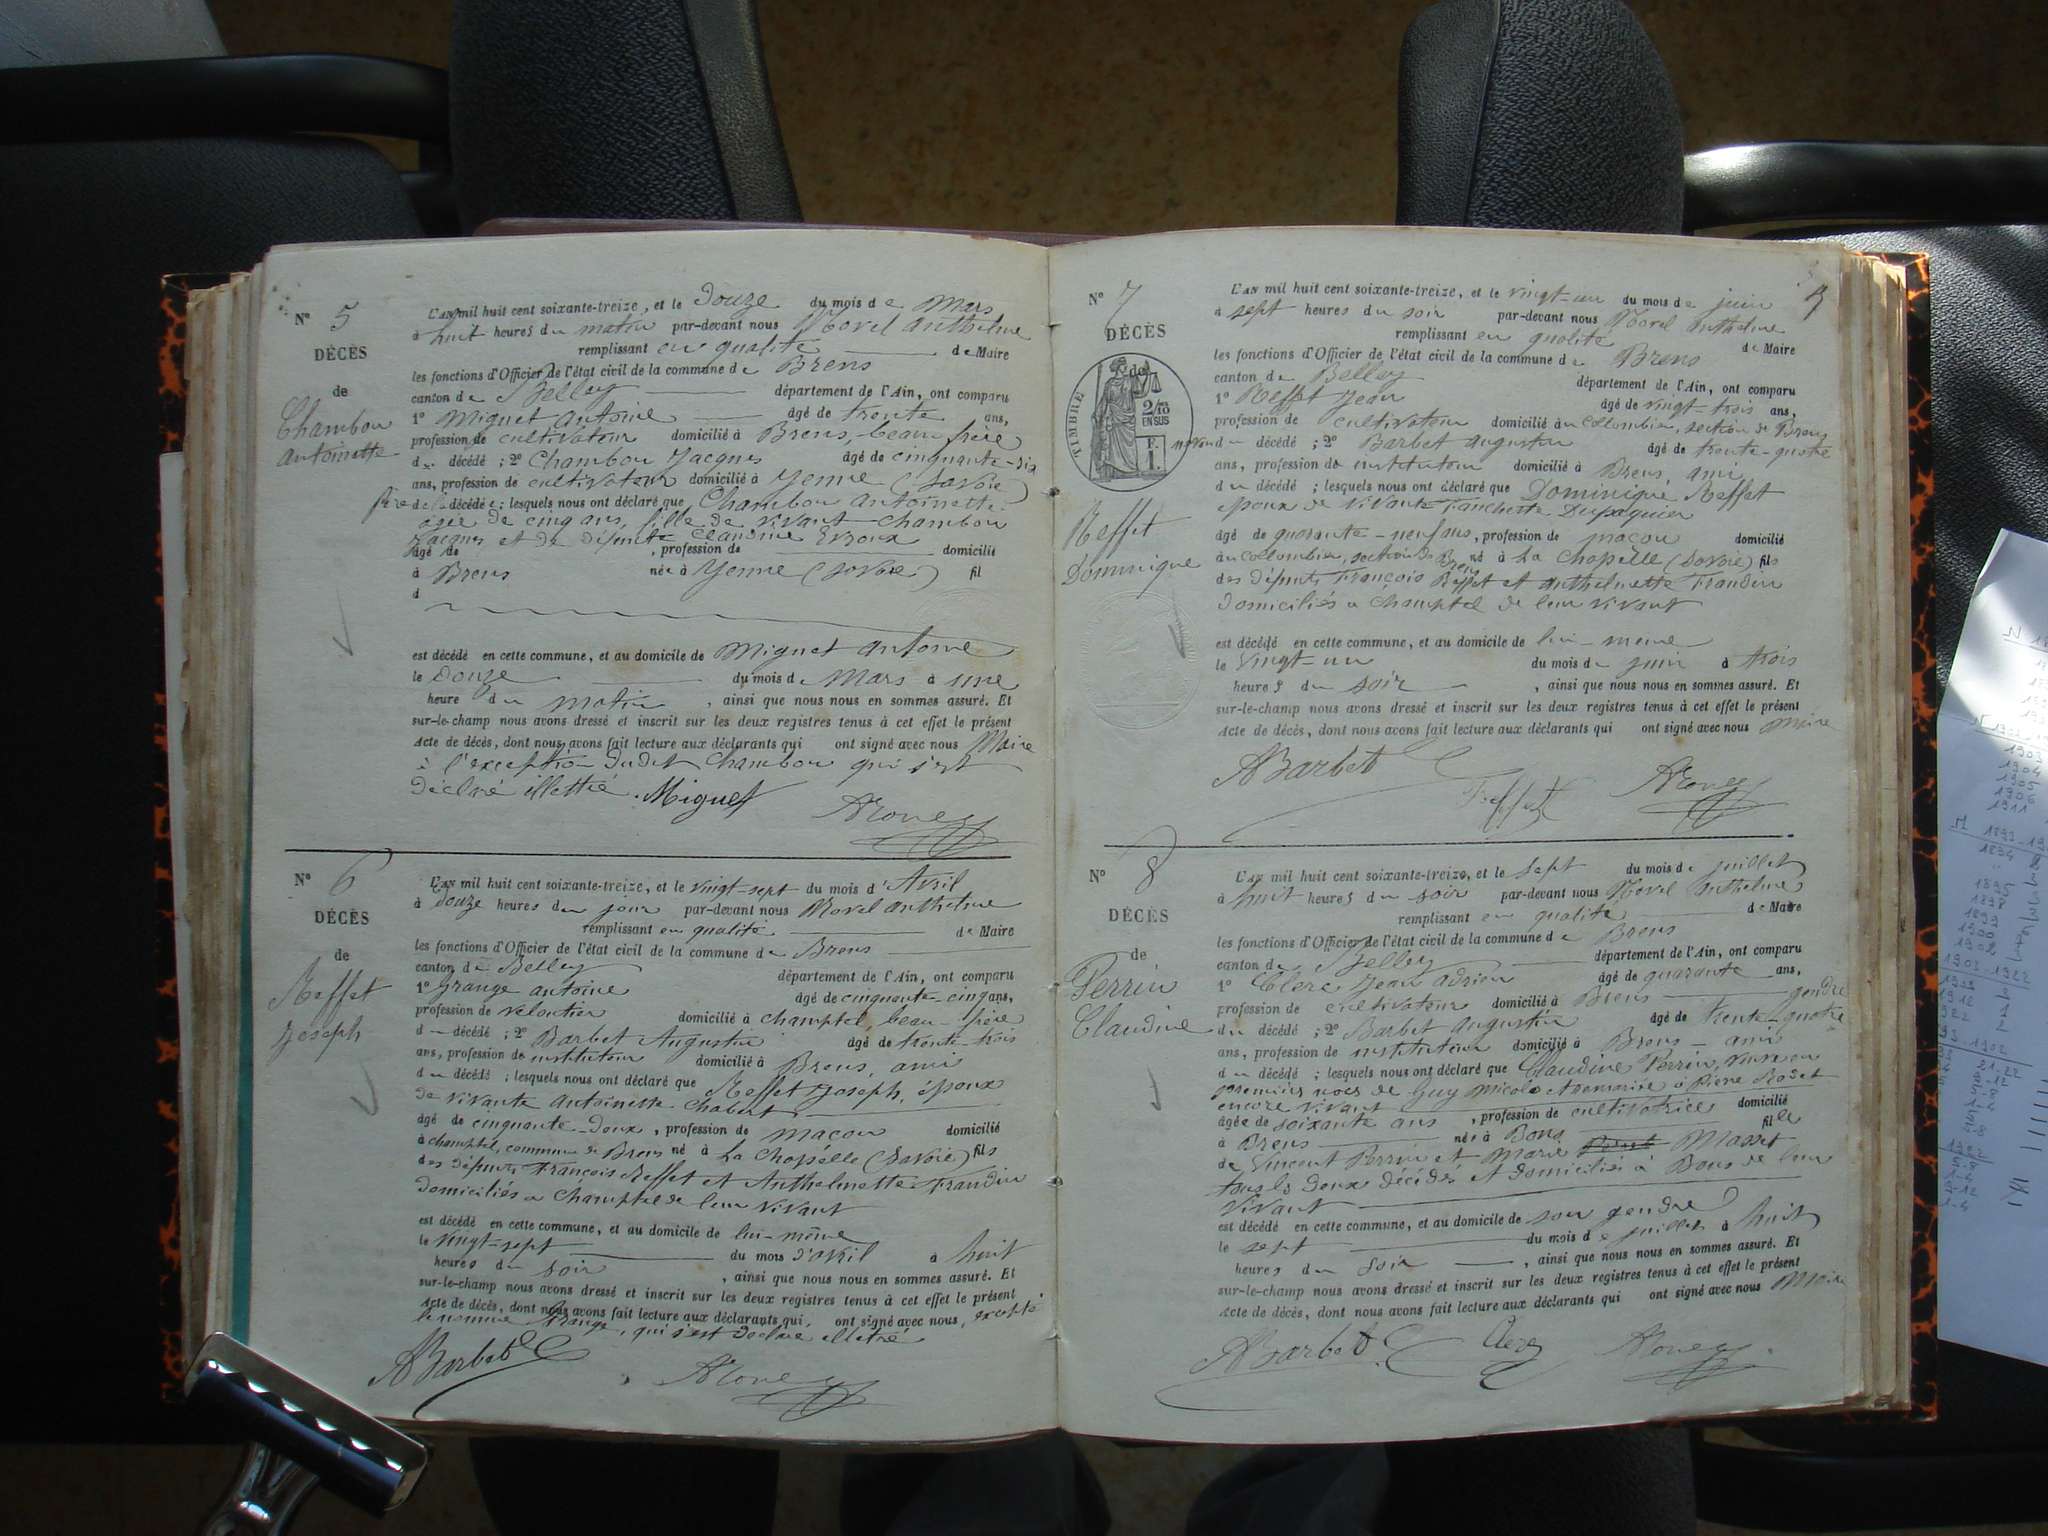 N° 5
DÉCÈS
de
Chambon
Antoinette
L'AN mil huit cent soixante-treize, et le Douze du mois de Mars
à huit heures du matin par-devant nous Anthelme
remplissant en qualité de Maire
les fonctions d'Officier de l'état civil de la commune de Brens
canton de Belley département de l'Ain, ont comparu
1° Miguet Antoine âgé de trente ans,
profession de cultivateur domicilié à Brens, beau frère
d décédé ; 2° Chambon Jacques âgé de cinquante-six
ans, profession de cultivateur domicilié à Yenne (Savoie)
décédée ; lesquels nous ont déclaré que Chambon Antoinette
âgée de cinq ans, fille de vivant Chambon
Jacques et de défunte Claudine
âgé de , profession de domicilié
à Brens née à Yenne (Savoie) fil
d
est décédé en cette commune, et au domicile de Miguet Antoine
le Douze du mois de Mars à une
heure du matin , ainsi que nous nous en sommes assuré. Et
sur-le-champ nous avons dressé et inscrit sur les deux registres tenus à cet effet le présent
Acte de décès, dont nous avons fait lecture aux déclarants qui ont signé avec nous Maire
à l'exception dudit Chambon qui s'est
déclaré illettré. Miguet
N° 6
DÉCÈS
de
Reffet
Joseph
L'AN mil huit cent soixante-treize, et le vingt-sept du mois d'Avril
à Douze heures du jour par-devant nous Anthelme
remplissant en qualité de Maire
les fonctions d'Officier de l'état civil de la commune de Brens
canton de Belley département de l'Ain, ont comparu
1° Grange Antoine âgé de cinquante-cinq ans,
profession de domicilié à Champtel, beau-frère
du décédé ; 2° Barbet Augustin âgé de trente-trois
ans, profession de instituteur domicilié à Brens, ami
du décédé ; lesquels nous ont déclaré que Reffet Joseph, époux
de vivante Antoinette Chabert
âgé de cinquante-deux , profession de maçon domicilié
à Champtel, commune de Brens né à La Chapelle (Savoie) fils
des défunts François Reffet et Anthelmette Frandin
domiciliés à Champtel de leur vivant
est décédé en cette commune, et au domicile de lui-même
le vingt-sept du mois d'avril à huit
heures du soir , ainsi que nous nous en sommes assuré. Et
sur-le-champ nous avons dressé et inscrit sur les deux registres tenus à cet effet le présent
Acte de décès, dont nous avons fait lecture aux déclarants qui ont signé avec nous, excepté
le nommé Grange, qui s'est déclaré illettré
ABarbet
N° 7
DÉCÈS
de
TIMBRE
2/10
EN SUS
F.
1.
Reffet
Dominique
L'AN mil huit cent soixante-treize, et le vingt-un du mois de juin
à sept heures du soir par-devant nous Anthelme
remplissant en qualité de Maire
les fonctions d'Officier de l'état civil de la commune de Brens
canton de Belley département de l'Ain, ont comparu
1° Reffet Jean âgé de vingt-trois ans,
profession de cultivateur domicilié au Collombier, section de Brens
neveu du décédé ; 2° Barbet Augustin âgé de trente-quatre
ans, profession de instituteur domicilié à Brens, ami
du décédé ; lesquels nous ont déclaré que Dominique Reffet
époux de vivante Fanchette Dupasquier
âgé de quarante-neuf ans, profession de maçon domicilié
au Collombier, section de Brens né à La Chapelle (Savoie) fils
des défunts François Reffet et Anthelmette Frandin
domiciliés à Champtel de leur vivant
est décédé en cette commune, et au domicile de lui-même
le vingt-un du mois de juin à trois
heures du soir , ainsi que nous nous en sommes assuré. Et
sur-le-champ nous avons dressé et inscrit sur les deux registres tenus à cet effet le présent
Acte de décès, dont nous avons fait lecture aux déclarants qui ont signé avec nous Maire
ABarbet Reffet
N° 8
DÉCÈS
de
Perrin
Claudine
L'AN mil huit cent soixante-treize, et le sept du mois de juillet
à huit heures du soir par-devant nous Anthelme
remplissant en qualité de Maire
les fonctions d'Officier de l'état civil de la commune de Brens
canton de Belley département de l'Ain, ont comparu
1° Clerc Jean Adrien âgé de quarante ans,
profession de cultivateur domicilié à Brens gendre
du décédé ; 2° Barbet Augustin âgé de trente-quatre
ans, profession de instituteur domicilié à Brens - ami
du décédé ; lesquels nous ont déclaré que Claudine Perrin, veuve en
premières noces de Guy Nicolas et remariée à Pierre
encore vivant
âgée de soixante ans , profession de cultivatrice domicilié
à Brens née à Bons fille
de Vincent Perrin et Marie Masset
tous les deux décédés et domiciliés à Bons de leur
vivant
est décédé en cette commune, et au domicile de son gendre
le sept du mois de juillet à huit
heures du soir , ainsi que nous nous en sommes assuré. Et
sur-le-champ nous avons dressé et inscrit sur les deux registres tenus à cet effet le présent
Acte de décès, dont nous avons fait lecture aux déclarants qui ont signé avec nous Maire
ABarbet Clerc
1903
1904
1905
1906
1911
1898
1899
1900
1902
1912
1922